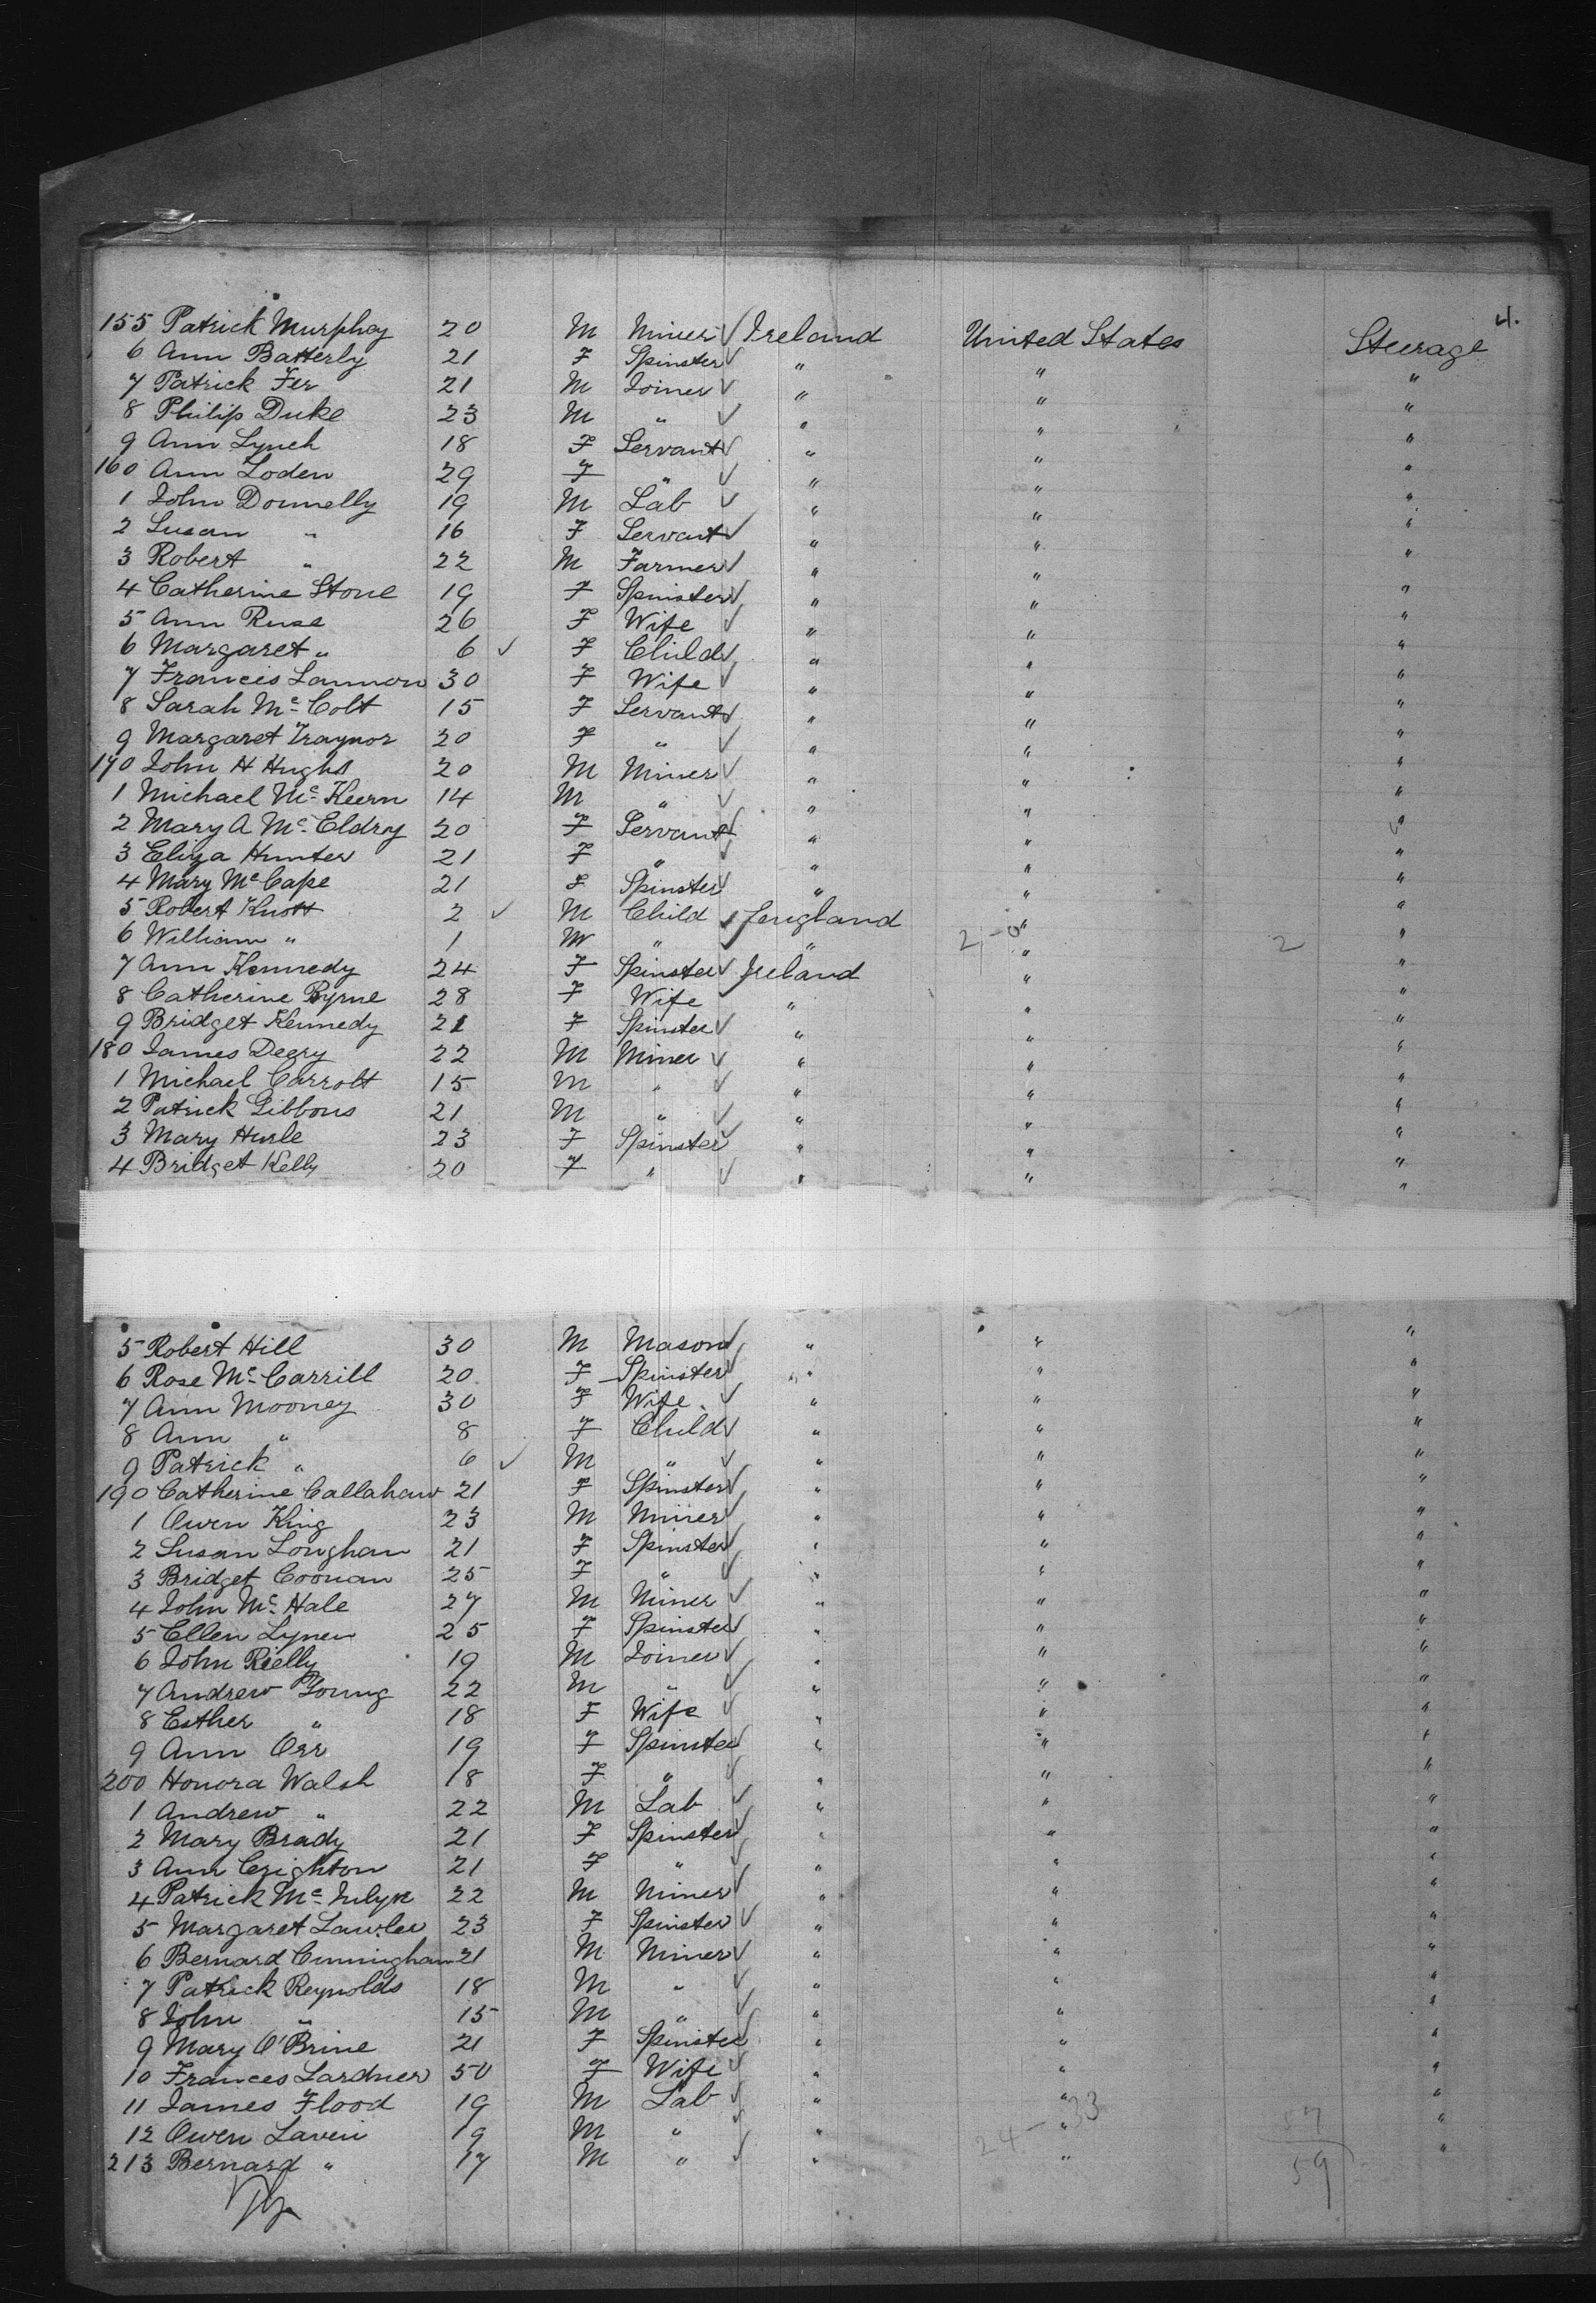 4.
155 Patrick Murphey 20 M Miner ✓ Ireland United States Steerage
6 Ann Batterly 21 F Spinster ✓ " " "
7 Patrick Fer 21 M Joiner ✓ " " "
8 Philip Duke 23 M " ✓ " " "
9 Ann Lynch 18 F Servant ✓ " " "
160 Ann Loden 29 F " ✓ " " "
1 John Donnelly 19 M Lab ✓ " " "
2 Susan " 16 F Servant ✓ " " "
3 Robert " 22 M Farmer ✓ " " "
4 Catherine Stone 19 F Spinster ✓ " " "
5 Ann Ruse 26 F Wife ✓ " " "
6 Margaret " 6 ✓ F Child ✓ " " "
7 Francis Lannon 30 F Wife ✓ " " "
8 Sarah Mc Colt 15 F Servant ✓ " " "
9 Margaret Traynor 20 F " ✓ " " "
170 John H Hughs 20 M Miner ✓ " " "
1 Michael Mc Keern 14 M " ✓ " " "
2 Mary A Mc Eldry 20 F Servant " " "
3 Eliza Hunter 21 F " ✓ " " "
4 Mary Mc Cape 21 F Spinster ✓ " " "
5 Robert Knott 2 ✓ M Child ✓ England " "
6 William " 1 M " ✓ " 2-0 " 2 "
7 Ann Kennedy 24 F Spinster ✓ Ireland " "
8 Catherine Byrne 28 F Wife ✓ " " "
9 Bridget Kennedy 21 F Spinster ✓ " " "
180 James Deery 22 M Miner ✓ " " "
1 Michael Carrolt 15 M " ✓ " " "
2 Patrick Gibbons 21 M " ✓ " " "
3 Mary Hurle 23 F Spinster ✓ " " "
4 Bridget Kelly 20 F " ✓ " " "
5 Robert Hill 30 M Mason ✓ " " "
6 Rose Mc Carrill 20 F Spinster ✓ " " "
7 Ann Mooney 30 F Wife ✓ " " "
8 Ann " 8 F Child ✓ " " "
9 Patrick " 6 ✓ M " ✓ " " "
190 Catherine Callahan 21 F Spinster ✓ " " "
1 Owen King 23 M Miner ✓ " " "
2 Susan Longhan 21 F Spinster ✓ " " "
3 Bridget Coonan 25 F " ✓ " " "
4 John Mc Hale 27 M Miner ✓ " " "
5 Ellen Lynen 25 F Spinster ✓ " " "
6 John Rielly 19 M Joiner ✓ " " "
7 Andrew Young 22 M " ✓ " " "
8 Esther " 18 F Wife ✓ " " "
9 Ann Orr 19 F Spinster ✓ " " "
200 Honora Walsh 18 F " ✓ " " "
1 Andrew " 22 M Lab ✓ " " "
2 Mary Brady 21 F Spinster ✓ " " "
3 Ann Crighton 21 F " ✓ " " "
4 Patrick Mc 22 M Miner ✓ " " "
5 Margaret Lawler 23 F Spinster ✓ " " "
6 Bernard Cunningham 21 M Miner ✓ " " "
7 Patrick Reynolds 18 M " ✓ " " "
8 John " 15 M " ✓ " " "
9 Mary O'Brine 21 F Spinster ✓ " " "
10 Frances Lardner 50 F Wife ✓ " " "
11 James Flood 19 M Lab ✓ " " "
12 Owen Lavin 19 M " ✓ " 24-33 " 57 "
213 Bernard " 17 M " ✓ " " 59 "